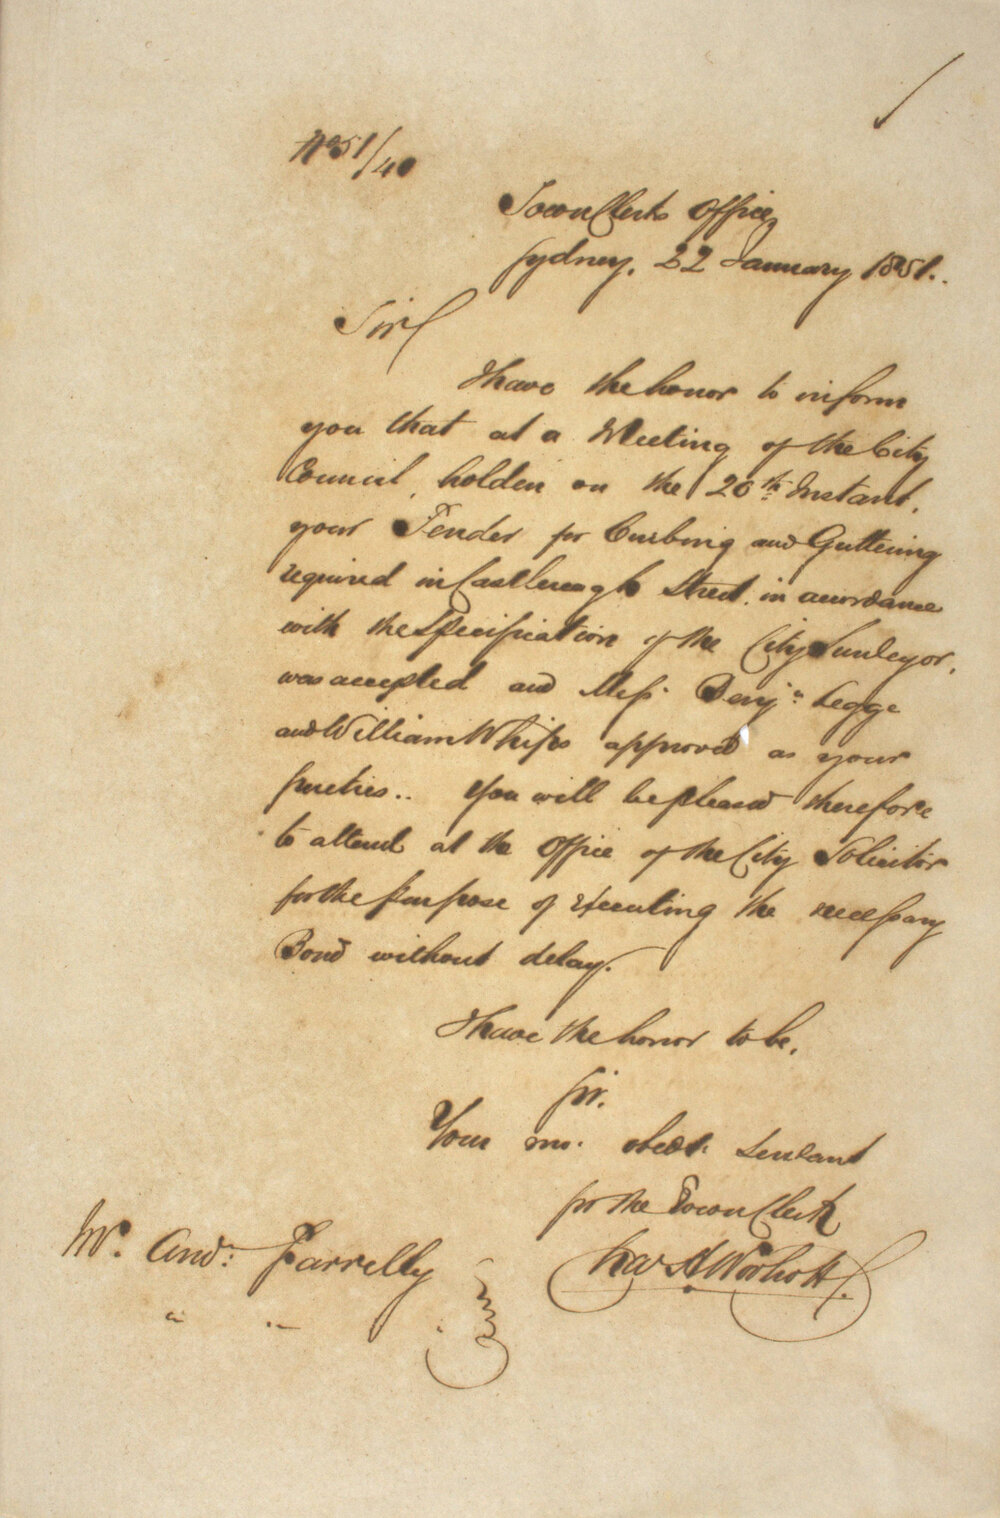 No 51/40
Town Clerks Office
Sydney, 22 January 1851.
Sir
I have the honor to inform
you that at a Meeting of the City
Council, holden on the 20th Instant,
your Tender for Curbing and Guttering
required in Castlereagh Street, in accordance
with the Specification of the City Surveyor,
was accepted and Messs. Benjn. Legge
and William Whips approved as your
Sureties.. You will be pleased therefore
to attend at the Office of the City Solicitor
for the purpose of executing the necessary
Bond without delay.
I have the honor to be,
Sir.
Your mo. obedt. Servant
for the Town Clerk
Chas H Woolcott
Mr. Andw. Farrelly